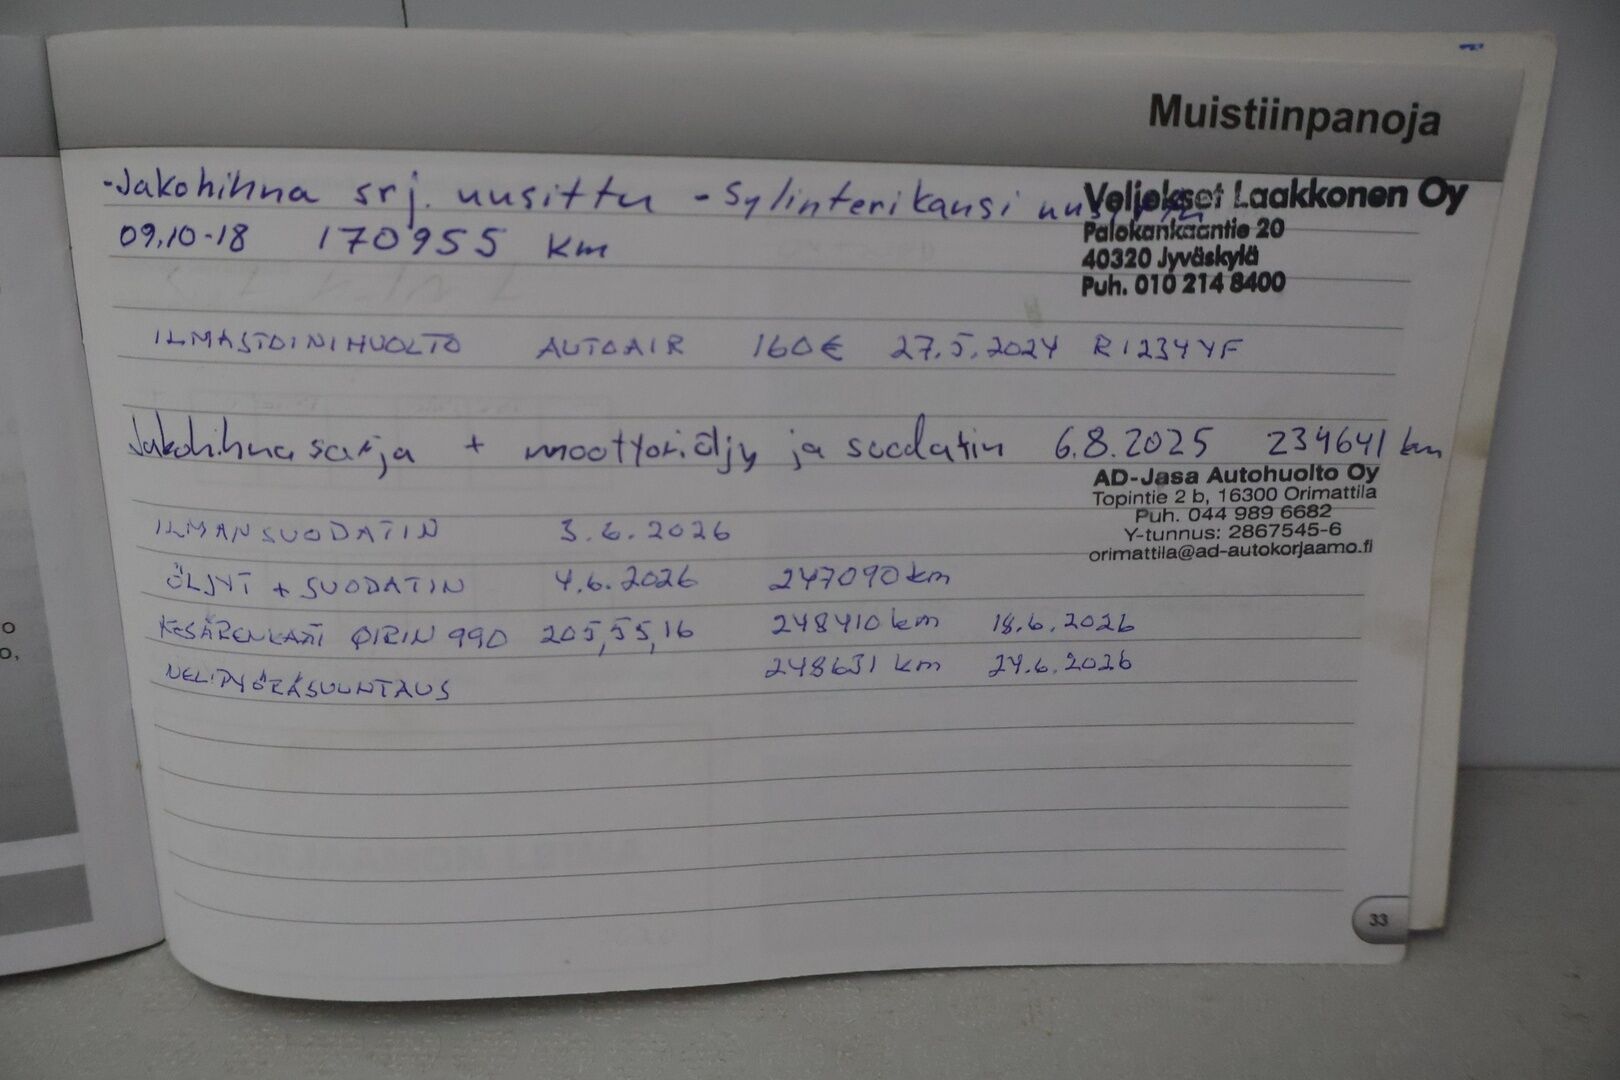 Muistiinpanoja
-Jakohihna srj. uusittu -Sylinterikansi uusittu
Veljekset Laakkonen Oy
09.10-18 170955 km
Palokankaantie 20
40320 Jyväskylä
Puh. 010 214 8400
ILMASTOINIHUOLTO AUTOAIR 160€ 27.5.2024 R1234YF
Jakohihnasarja + moottoriöljy ja suodatin 6.8.2025 234641 km
AD-Jasa Autohuolto Oy
Topintie 2 b, 16300 Orimattila
Puh. 044 989 6682
Y-tunnus: 2867545-6
orimattila@ad-autokorjaamo.fi
ILMANSUODATIN 3.6.2026
ÖLJYT + SUODATIN 4.6.2026 247090 km
KESÄRENKAAT 990 205,55,16 248410 km 18.6.2026
NELIPYÖRÄSUUNTAUS 248631 km 24.6.2026
o
o,
33